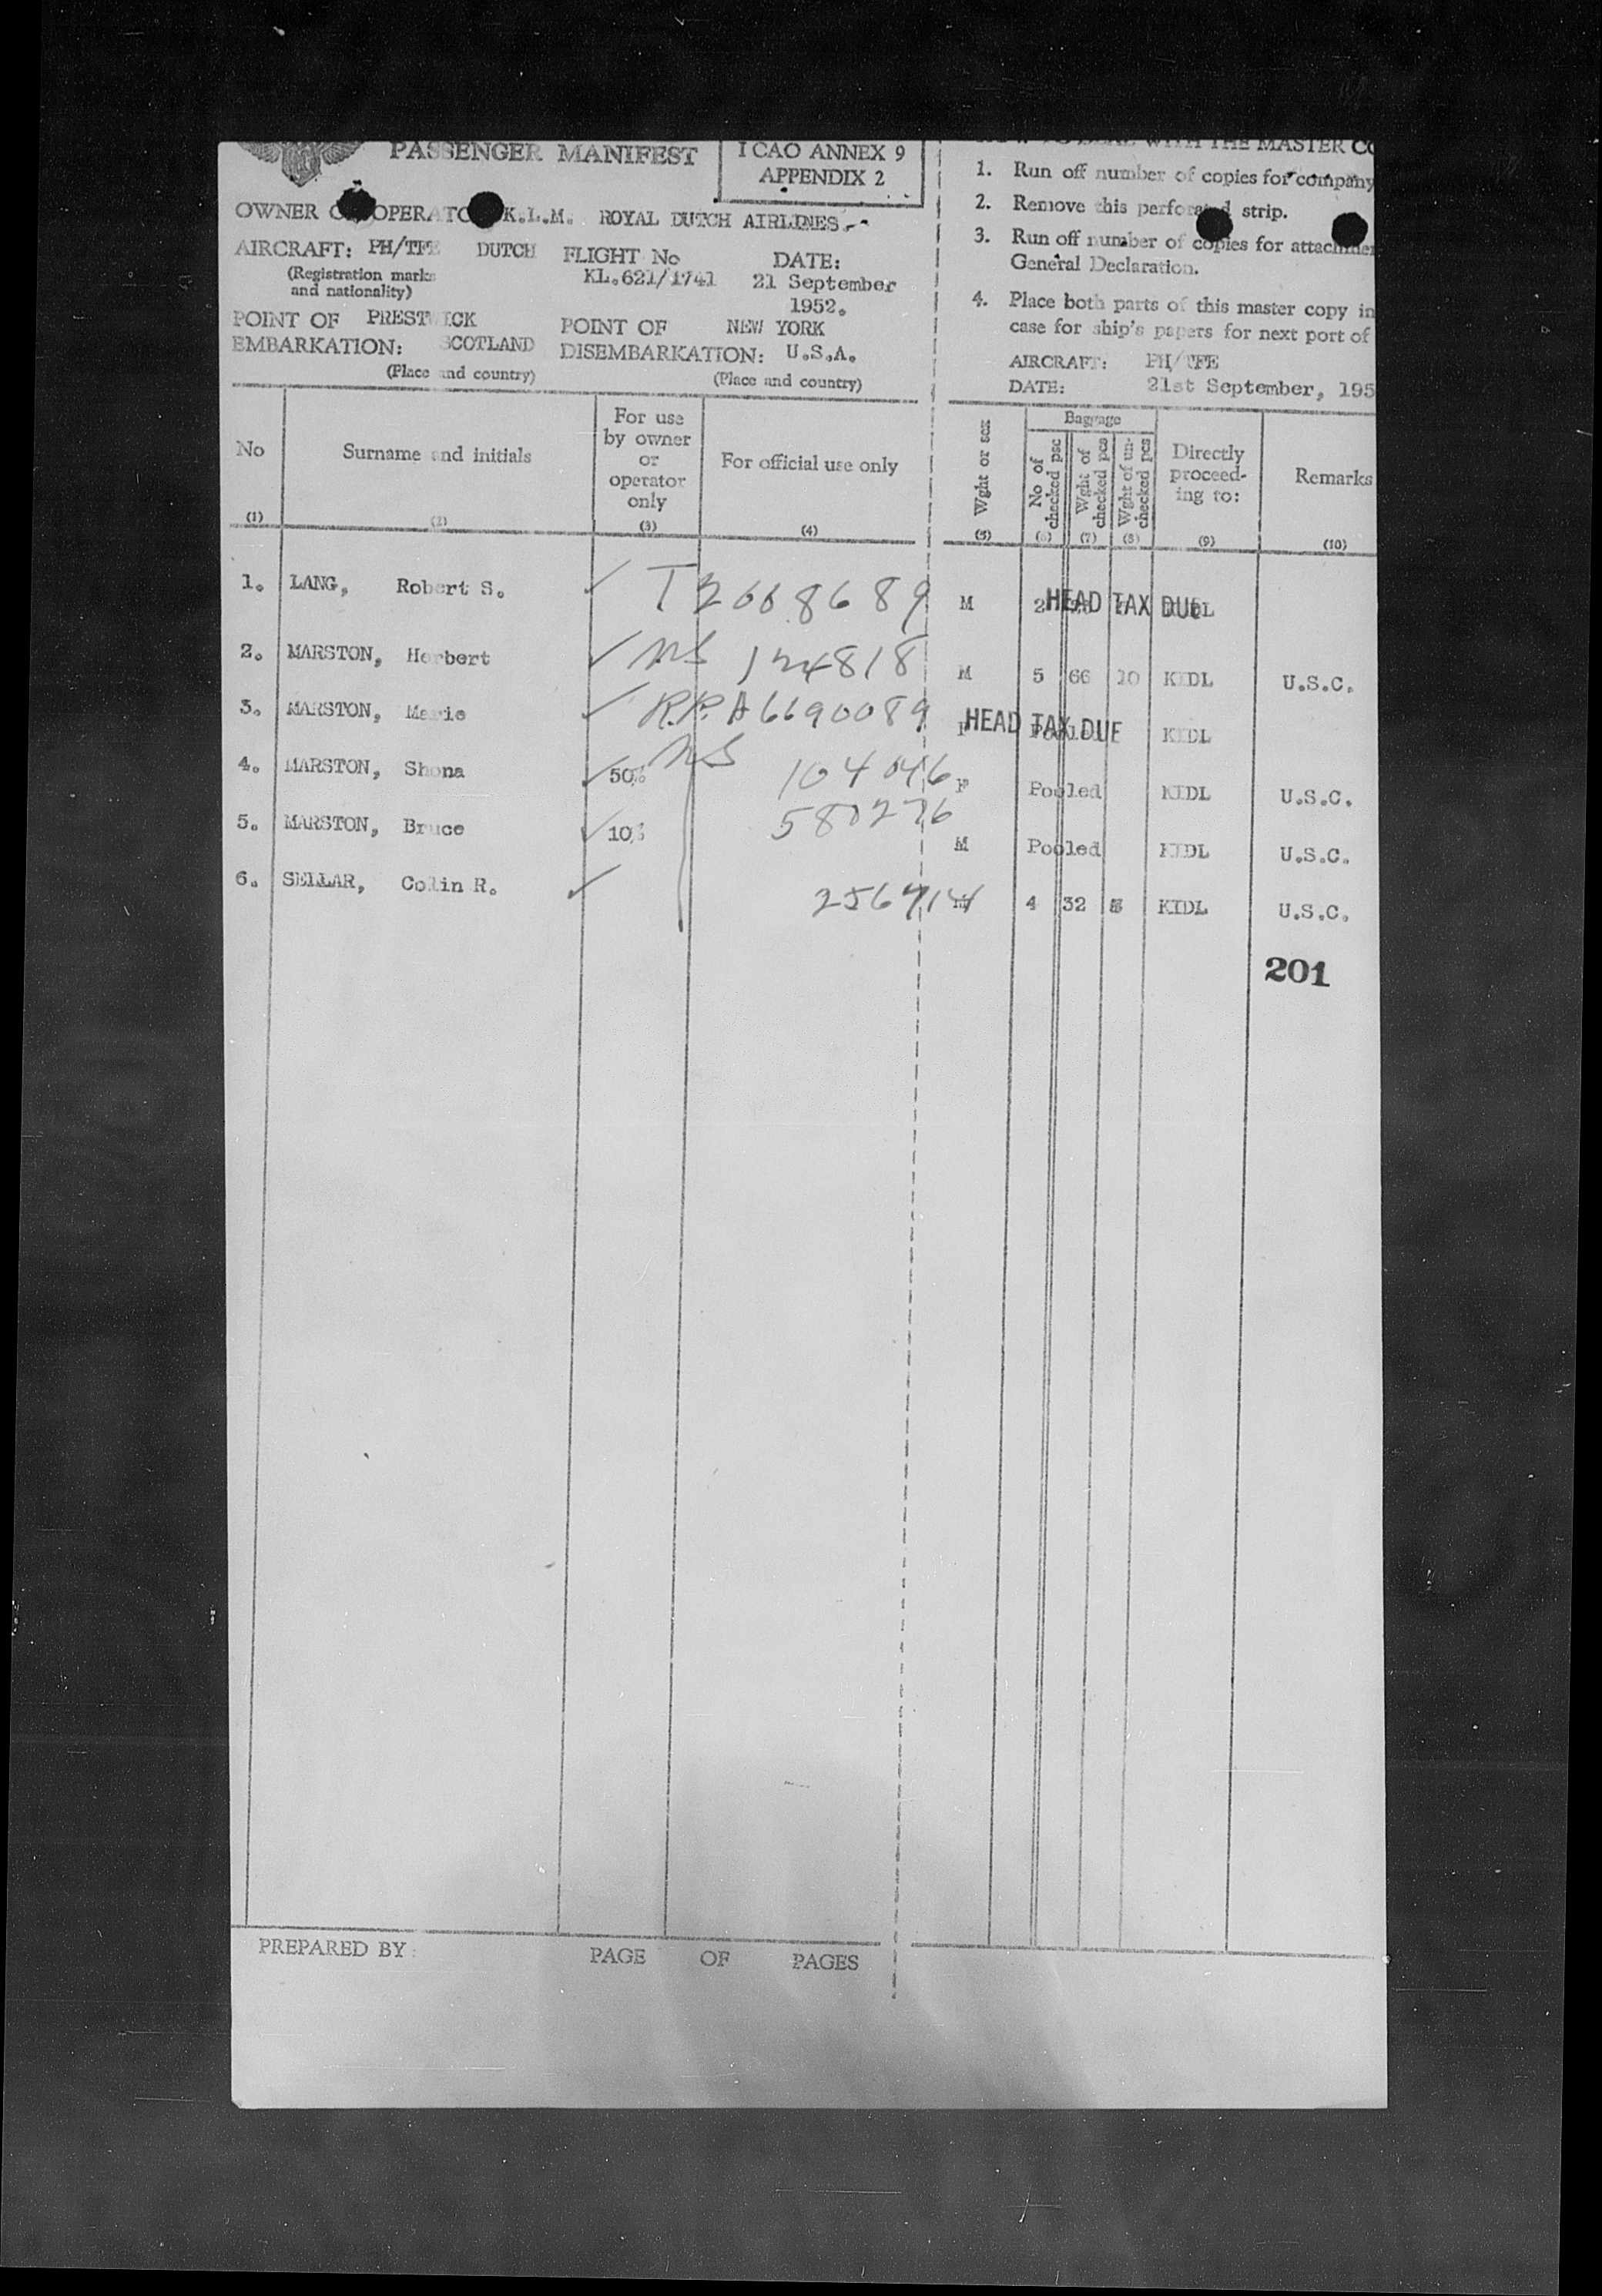 PASSENGER MANIFEST
I CAO ANNEX 9
APPENDIX 2
OWNER OPERATO K.L.M. ROYAL DUTCH AIRLINES.
AIRCRAFT: PH/TFE DUTCH FLIGHT No DATE:
(Registration marks and nationality)
KL.621/1741 21 September 1952.
POINT OF EMBARKATION: PRESTWICK SCOTLAND
(Place and country)
POINT OF DISEMBARKATION: NEW YORK U.S.A.
(Place and country)
WITH THE MASTER CO
1. Run off number of copies for company
2. Remove this perforated strip.
3. Run off number of copies for attachmen
General Declaration.
4. Place both parts of this master copy in
case for ship's papers for next port of
AIRCRAFT: PH/TFE
DATE: 21st September, 195
No (1)
Surname and initials (2)
For use by owner or operator only (3)
For official use only (4)
Wght or sex (5)
Baggage
No of checked psc (6)
Wght of checked pcs (7)
Wght of un-checked pcs (8)
Directly proceed-ing to: (9)
Remarks (10)
1. LANG, Robert S. ✓ M 2 HEAD TAX DUE
2. MARSTON, Herbert ✓ NS 124818 M 5 66 10 KIDL U.S.C.
3. MARSTON, Marie ✓ R.P. A6690089 F HEAD TAX DUE KIDL
4. MARSTON, Shona ✓ 50% NS 104046 F Pooled KIDL U.S.C.
5. MARSTON, Bruce ✓ 10% 580276 M Pooled KIDL U.S.C.
6. SELLAR, Colin R. ✓ M 4 32 KIDL U.S.C.
201
PREPARED BY: PAGE OF PAGES